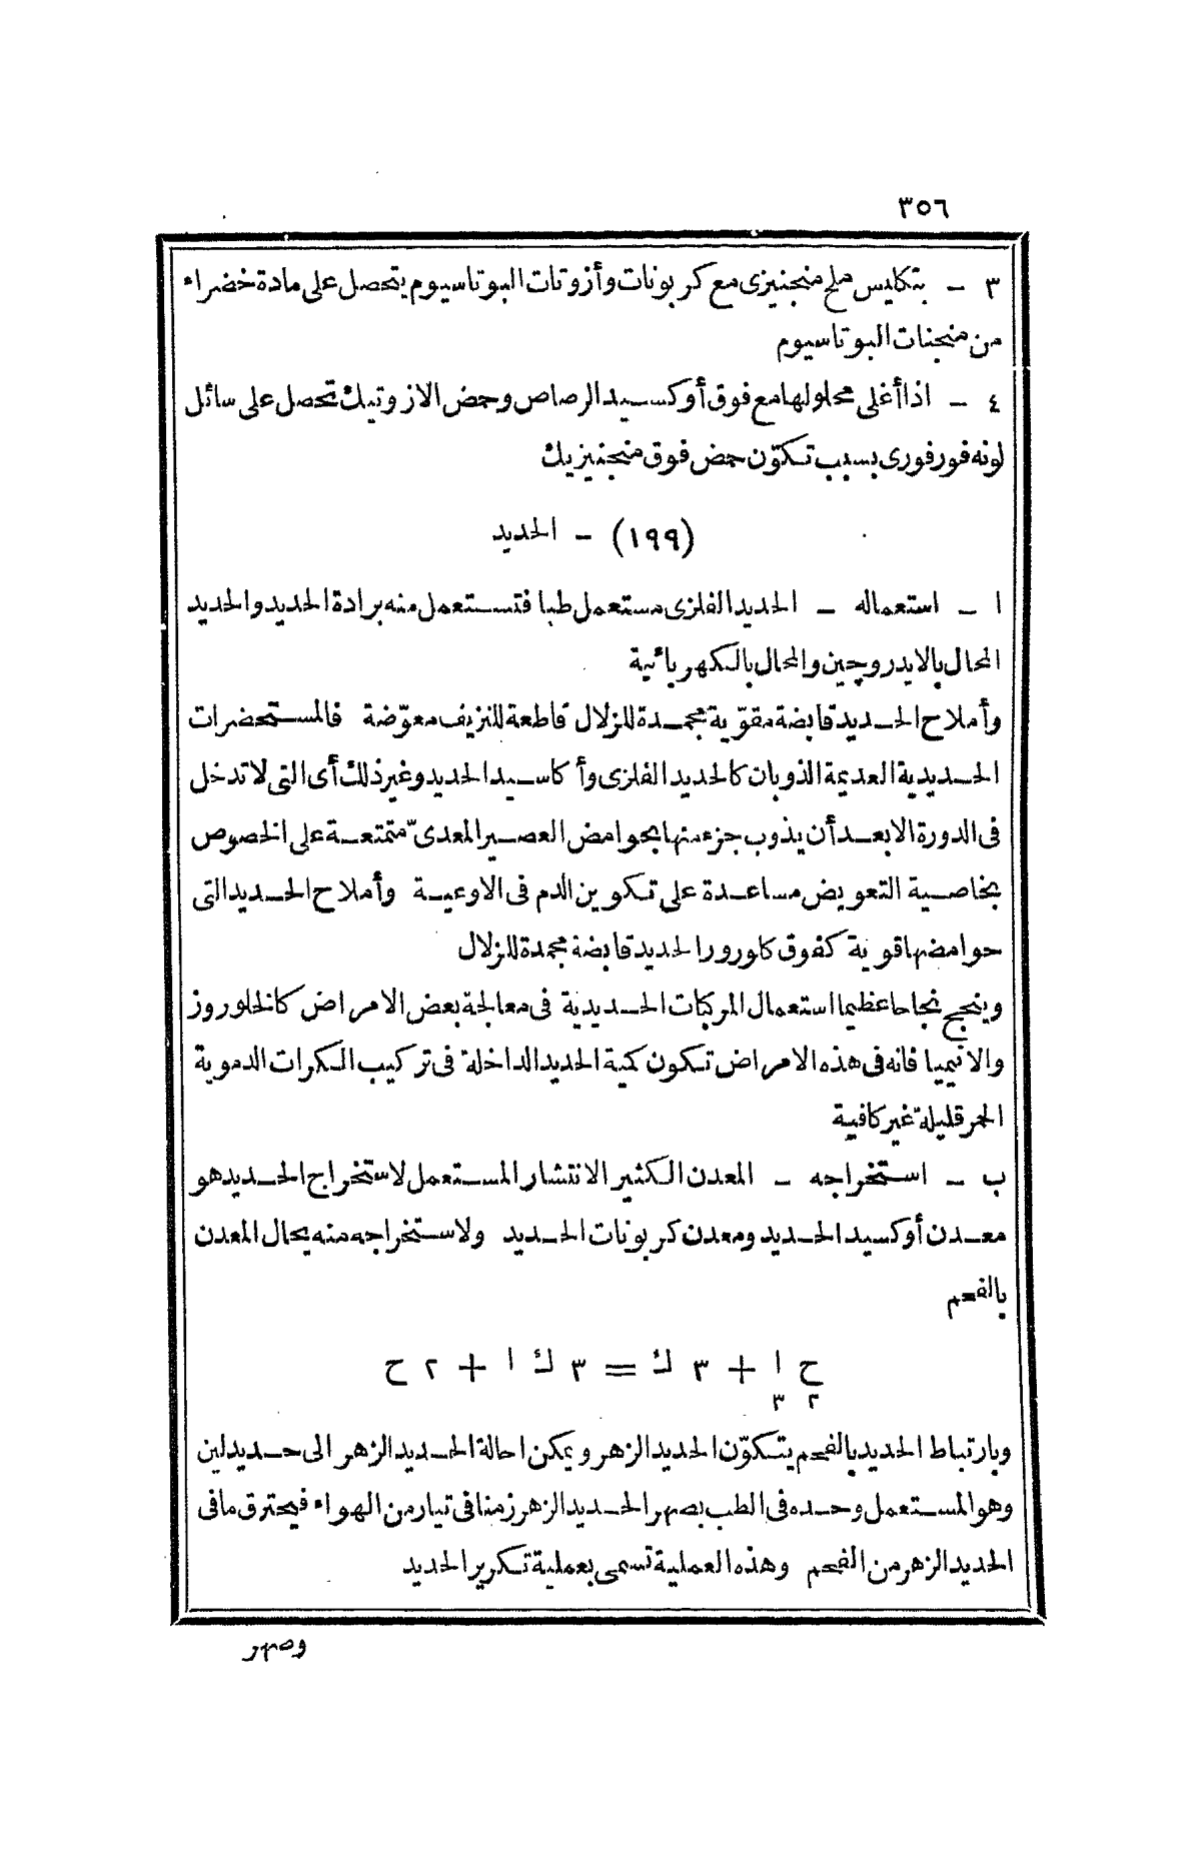 ٣٥٦
٣ - بتكليس ملح منجنيزى مع كربونات وأزوتات البوتاسيوم يتحصل على مادة خضراء
من منجنات البوتاسيوم
٤ - اذا أغلى محلولها مع فوق أوكسيد الرصاص وحمض الازوتيك تحصل على سائل
لونه فورفورى بسبب تكوّن حمض فوق منجنيزيك
(١٩٩) - الحديد
ا - استعماله - الحديد الفلزى مستعمل طبا فتستعمل منه برادة الحديد والحديد
المحال بالايدروچين والمحال بالكهربائية
وأملاح الحديد قابضة مقوّية مجمدة للزلال قاطعة للنزيف معوّضة فالمستحضرات
الحديدية العديمة الذوبان كالحديد الفلزى وأكاسيد الحديد وغير ذلك أى التى لا تدخل
فى الدورة الا بعد أن يذوب جزء منها بحوامض العصير المعدىّ متمتعة على الخصوص
بخاصية التعويض مساعدة على تكوين الدم فى الاوعية وأملاح الحديد التى
حوامضها قوية كفوق كلورور الحديد قابضة مجمدة للزلال
وينجح نجاحا عظيما استعمال المركبات الحديدية فى معالجة بعض الامراض كالخلوروز
والانيميا فانه فى هذه الامراض تكون كمية الحديد الداخلة فى تركيب الكرات الدموية
الحمر قليلة غير كافية
ب - استخراجه - المعدن الكثير الانتشار المستعمل لاستخراج الحديد هو
معدن أوكسيد الحديد ومعدن كربونات الحديد ولاستخراجه منه يحال المعدن
بالفحم
ح٢ ا٣ + ٣ ك = ٣ ك ا + ٢ ح
وبارتباط الحديد بالفحم يتكوّن الحديد الزهر ويمكن احالة الحديد الزهر الى حديد لين
وهو المستعمل وحده فى الطب بصهر الحديد الزهر زمنا فى تيار من الهواء فيحترق ما فى
الحديد الزهر من الفحم وهذه العملية تسمى بعملية تكرير الحديد
وصهر